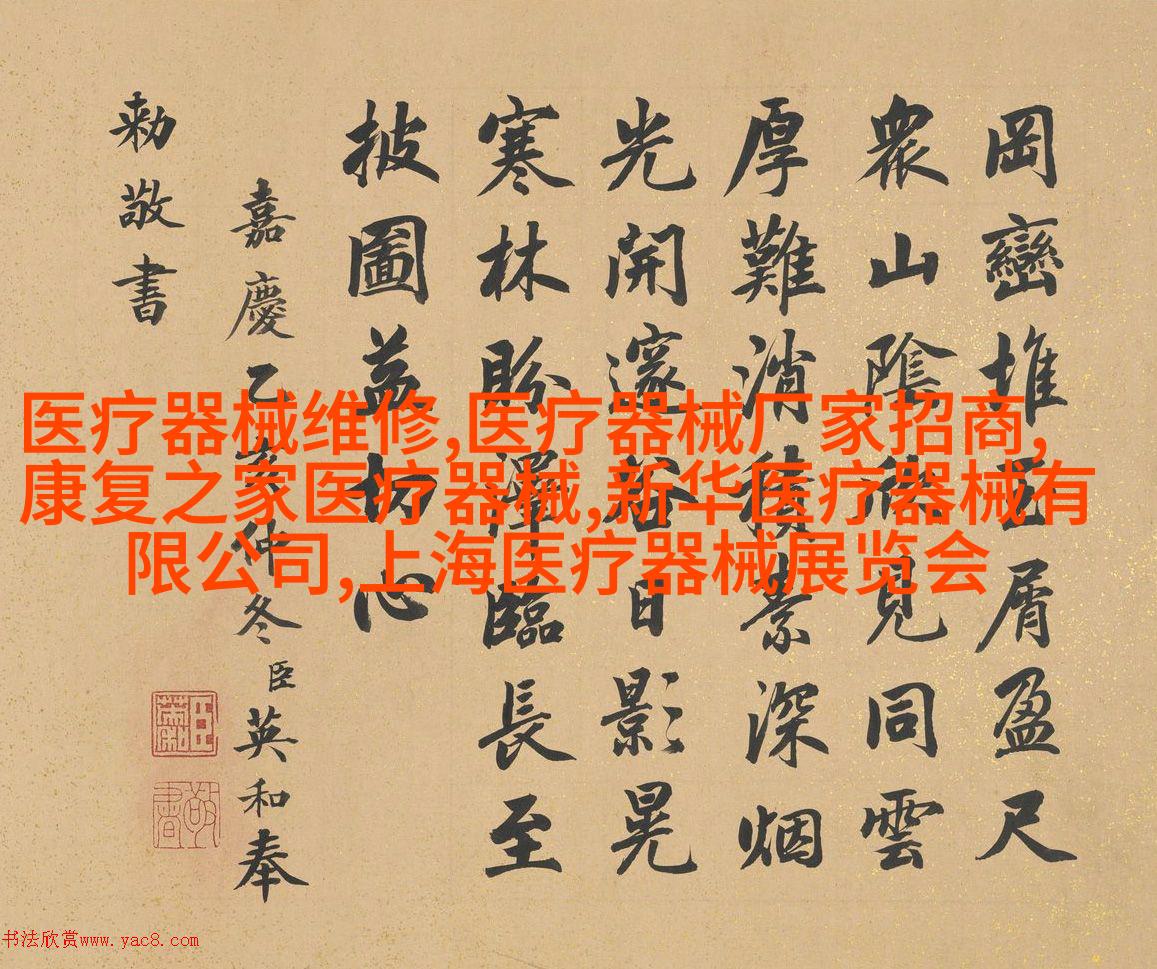 岡巒堆屑盈尺
衆山陰見同雲
厚難消積素深烟
光開邃谷日影晃
寒林盼澤臨長至
披圖益切心
嘉慶乙仲冬臣英和奉
勅敬書
敬書
医疗器械维修,医疗器械厂家招商,
康复之家医疗器械,新华医疗器械有
限公司,上海医疗器械展览会
书法欣赏www.yac8.com